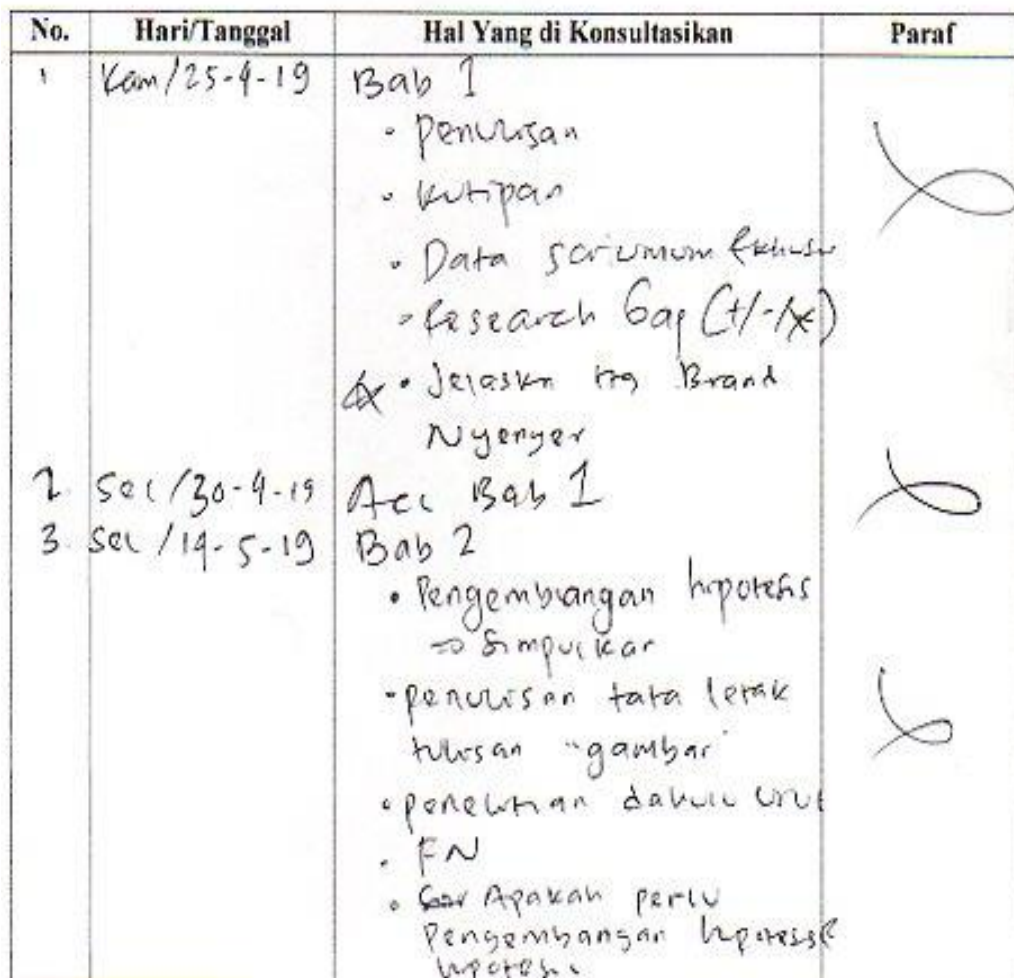 No. Hari/Tanggal Hal Yang di Konsultasikan Paraf
1 Kam/25-4-19 Bab 1
• Penulisan
• Kutipan
• Data
• Research Gap (+/-/x)
• Jelaskn ttg Brand
Nyenyer
2. Sel/30-4-19 Acc Bab 1
3. Sel/14-5-19 Bab 2
• Pengembangan hipotesis
⇒ Simpulkan
• penulisan tata letak
tulisan "gambar"
• penelitian dahulu urut
• FN
• Apakah perlu
Pengembangan hipotesis
hipotesis